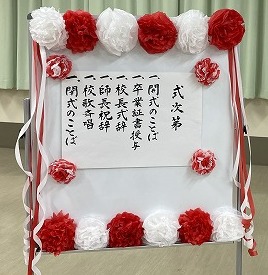 式次第
一、開式のことば
一、卒業証書授与
一、校長式辞
一、師長祝辞
一、校歌斉唱
一、閉式のことば